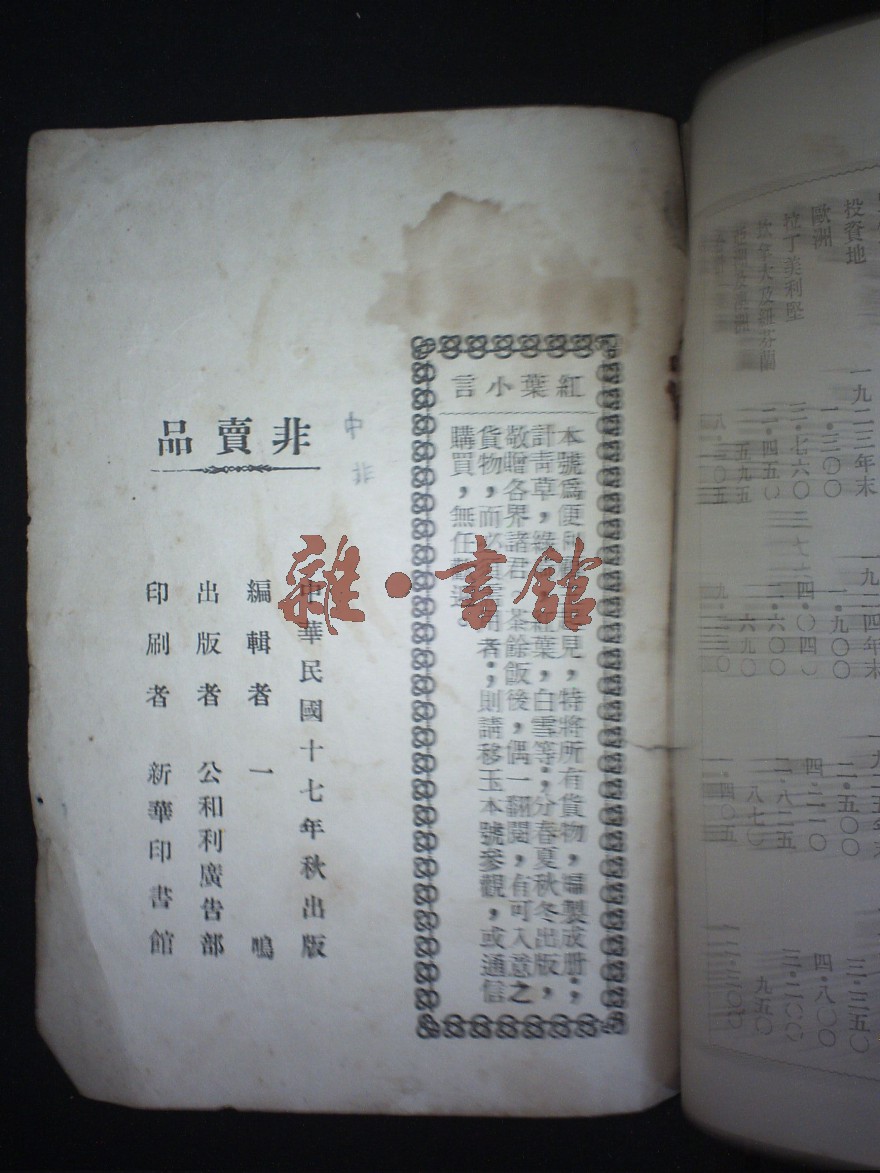 投資地
歐洲
拉丁美利堅
坎拿大及紐芬蘭
一九二三年末
一・三〇〇
二・七六〇
二・四五〇
五九五
八・二〇五
一九二四年末
一・九〇〇
四・〇四〇
二・六〇〇
六九〇
九・二三〇
二・五〇〇
四・二一〇
二・八二五
八七〇
一・四〇五
三・三五〇
四・八〇〇
三・二〇〇
九五〇
紅葉小言
本號爲便利 見，特將所有貨物，編製成册；
計靑草，綠 紅葉，白雪等；分春夏秋冬出版，
敬贈各界諸君，茶餘飯後，偶一翻閱，有可入意之
貨物，而必 者；則請移玉本號參觀，或通信
購買，無任歡迎。
中非
非賣品
中華民國十七年秋出版
編輯者 一鳴
出版者 公和利廣告部
印刷者 新華印書館
雜・書館